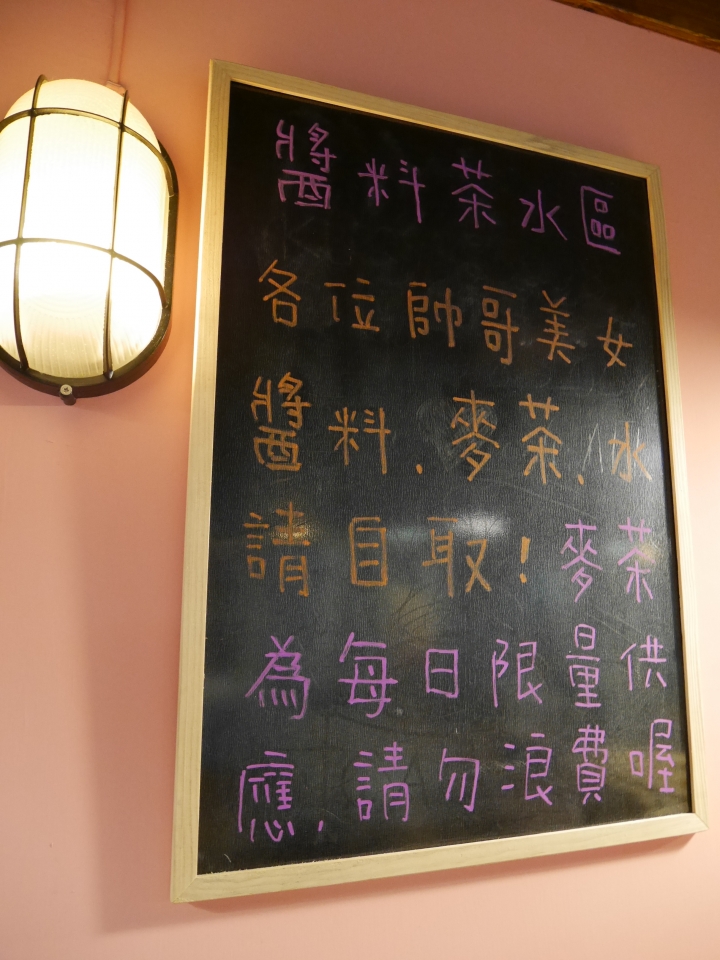 醬料茶水區
各位帥哥美女
醬料.麥茶.水
請自取!麥茶
為每日限量供
應,請勿浪費喔